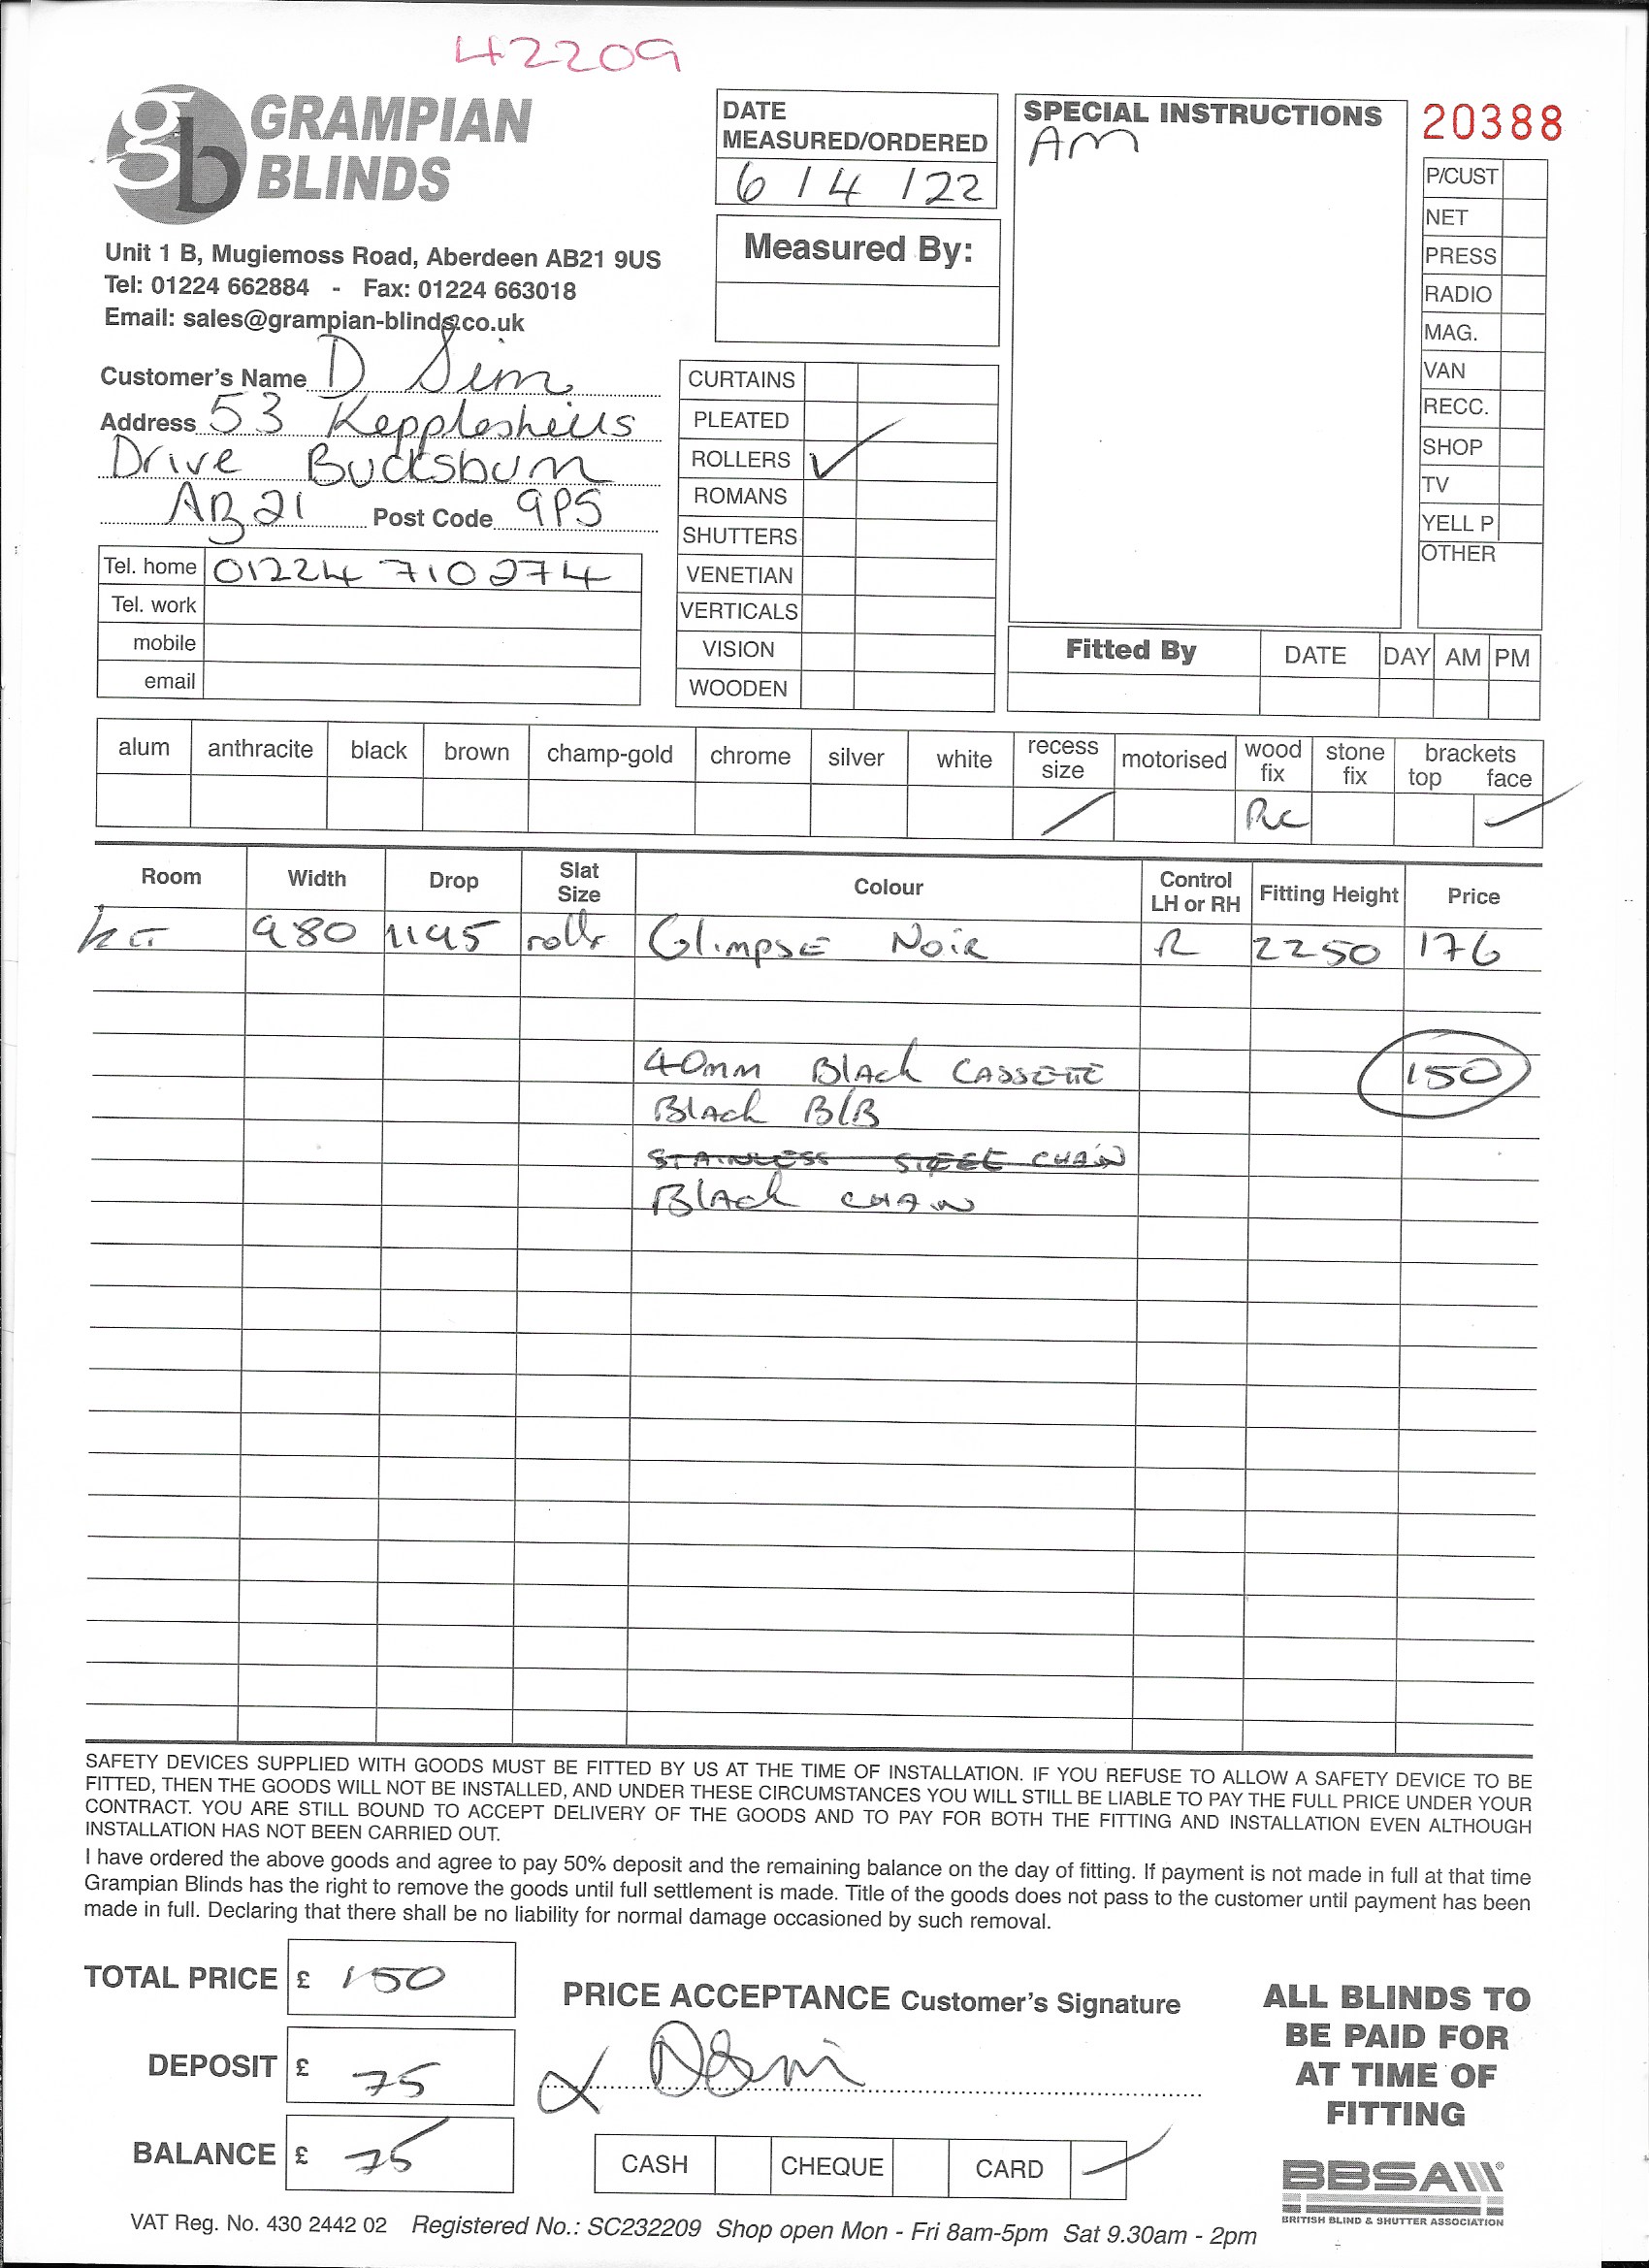 42209
GRAMPIAN
BLINDS
Unit 1 B, Mugiemoss Road, Aberdeen AB21 9US
Tel: 01224 662884 - Fax: 01224 663018
Email: sales@grampian-blinds.co.uk
Customer's Name D Sim
Address 53 Kepplehills
Drive Bucksburn
AB21 Post Code 9PS
Tel. home 01224 710274
Tel. work
mobile
email
DATE
MEASURED/ORDERED
6 / 4 / 22
Measured By:
CURTAINS
PLEATED
ROLLERS ✓
ROMANS
SHUTTERS
VENETIAN
VERTICALS
VISION
WOODEN
SPECIAL INSTRUCTIONS
AM
20388
P/CUST
NET
PRESS
RADIO
MAG.
VAN
RECC.
SHOP
TV
YELL P
OTHER
Fitted By DATE DAY AM PM
alum anthracite black brown champ-gold chrome silver white recess size motorised wood fix stone fix brackets top face
/ ✓
Room Width Drop Slat Size Colour Control LH or RH Fitting Height Price
KIT 980 1195 rollr Glimpse Noir R 2250 176
40mm Black CASSETTE 150
Black B/B
STAINLESS STEEL CHAIN
Black CHAIN
SAFETY DEVICES SUPPLIED WITH GOODS MUST BE FITTED BY US AT THE TIME OF INSTALLATION. IF YOU REFUSE TO ALLOW A SAFETY DEVICE TO BE
FITTED, THEN THE GOODS WILL NOT BE INSTALLED, AND UNDER THESE CIRCUMSTANCES YOU WILL STILL BE LIABLE TO PAY THE FULL PRICE UNDER YOUR
CONTRACT. YOU ARE STILL BOUND TO ACCEPT DELIVERY OF THE GOODS AND TO PAY FOR BOTH THE FITTING AND INSTALLATION EVEN ALTHOUGH
INSTALLATION HAS NOT BEEN CARRIED OUT.
I have ordered the above goods and agree to pay 50% deposit and the remaining balance on the day of fitting. If payment is not made in full at that time
Grampian Blinds has the right to remove the goods until full settlement is made. Title of the goods does not pass to the customer until payment has been
made in full. Declaring that there shall be no liability for normal damage occasioned by such removal.
TOTAL PRICE £ 150
DEPOSIT £ 75
BALANCE £ 75
PRICE ACCEPTANCE Customer's Signature
x DSim
CASH CHEQUE CARD ✓
ALL BLINDS TO
BE PAID FOR
AT TIME OF
FITTING
BBSA
BRITISH BLIND & SHUTTER ASSOCIATION
VAT Reg. No. 430 2442 02 Registered No.: SC232209 Shop open Mon - Fri 8am-5pm Sat 9.30am - 2pm